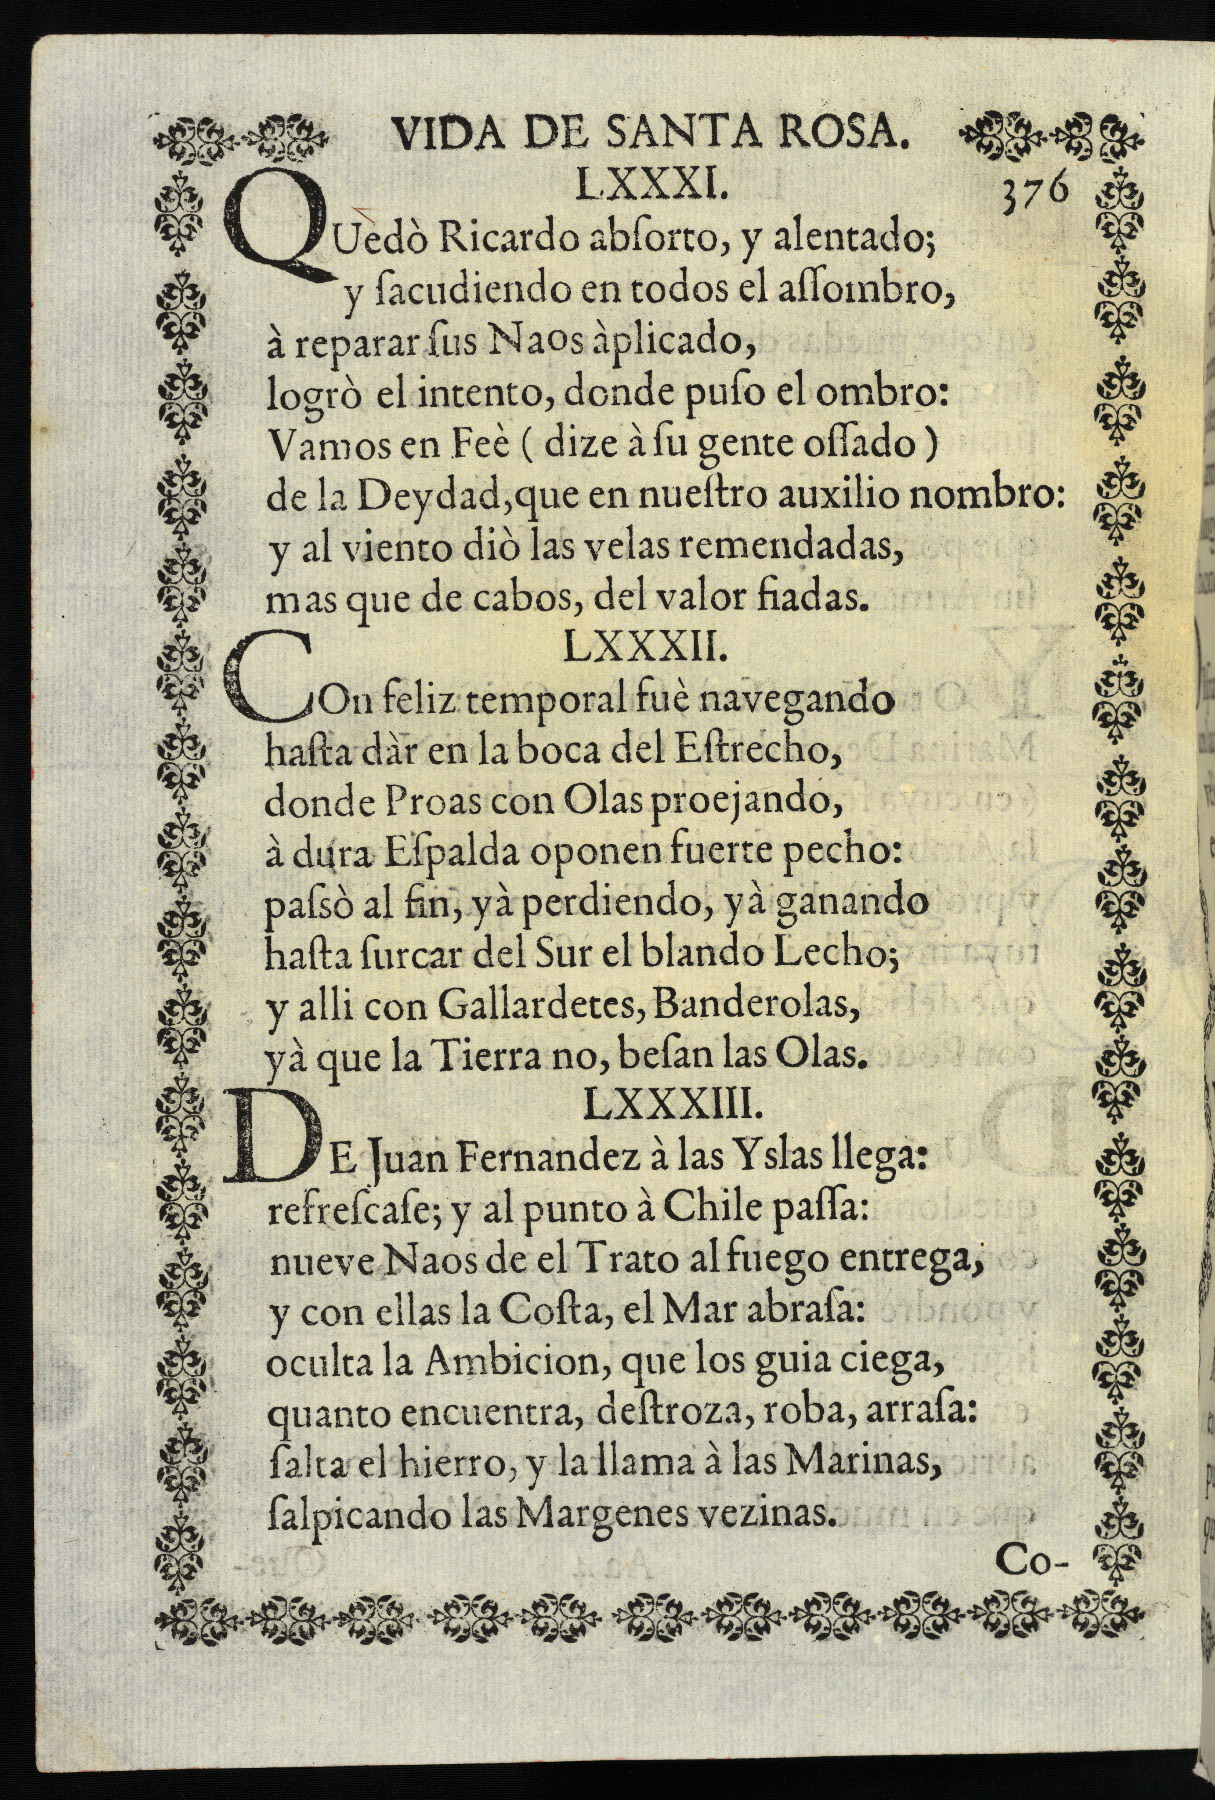 VIDA DE SANTA ROSA.
LXXXI.
376
QUèdò Ricardo abſorto, y alentado;
y ſacudiendo en todos el aſſombro,
à reparar ſus Naos àplicado,
logrò el intento, donde puſo el ombro:
Vamos en Feè ( dize à ſu gente oſſado )
de la Deydad,que en nueſtro auxilio nombro:
y al viento diò las velas remendadas,
mas que de cabos, del valor fiadas.
LXXXII.
COn feliz temporal fuè navegando
haſta dàr en la boca del Eſtrecho,
donde Proas con Olas proejando,
à dura Eſpalda oponen fuerte pecho:
paſsò al fin, yà perdiendo, yà ganando
haſta ſurcar del Sur el blando Lecho;
y alli con Gallardetes, Banderolas,
yà que la Tierra no, beſan las Olas.
LXXXIII.
DE Juan Fernandez à las Yslas llega:
refreſcaſe; y al punto à Chile paſſa:
nueve Naos de el Trato al fuego entrega,
y con ellas la Coſta, el Mar abraſa:
oculta la Ambicion, que los guia ciega,
quanto encuentra, deſtroza, roba, arraſa:
ſalta el hierro, y la llama à las Marinas,
ſalpicando las Margenes vezinas.
Co-